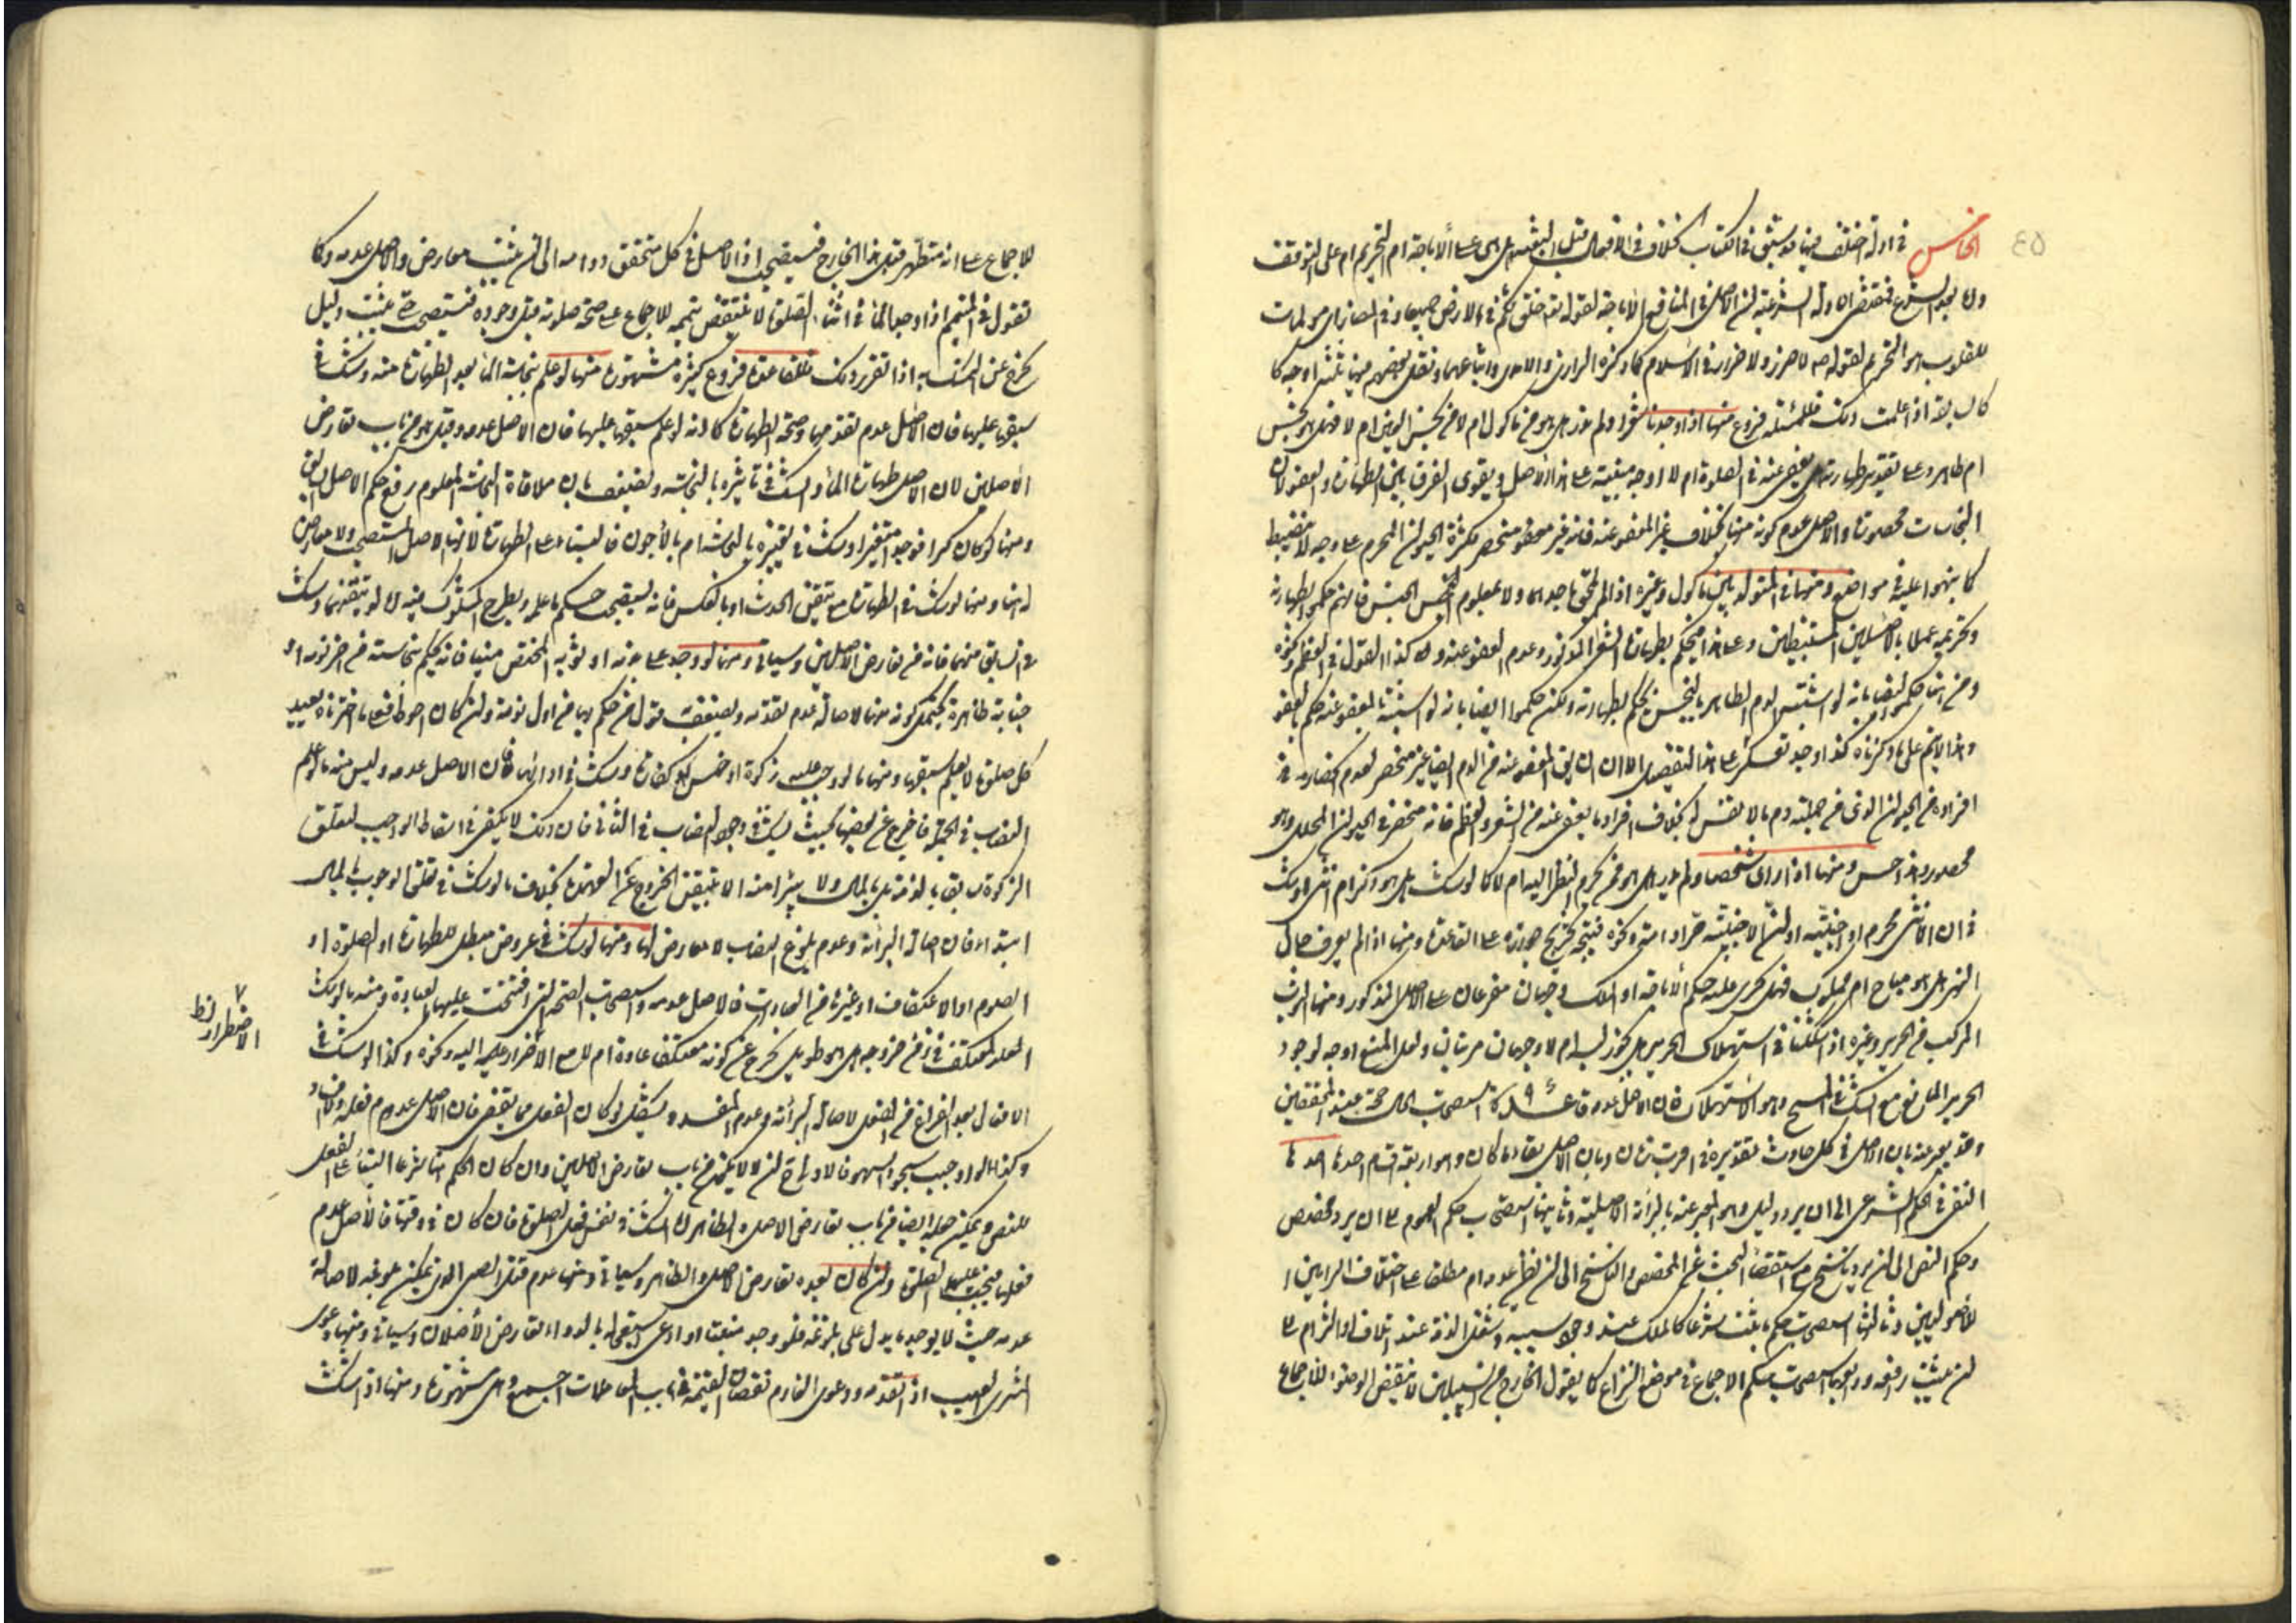 ٤٥
الخامس في ادلة اختلف فيها قد سبق في الكتاب الخلاف في الافعال قبل البعثة هل هي على الاباحة ام التحريم ام على التوقف
واما بعد الشرع فمقتضى الادلة الشرعية ان الاصل في المنافع الاباحة لقوله تعالى خلق لكم ما في الارض جميعا وفي المضار اي مولمات
للقلوب هو التحريم لقوله ص لا ضرر ولا ضرار في الاسلام كما ذكره الرازي والآمدي واتباعهما ونقل بعضهم فيها ثلثة اوجه كا
اذا علمت ذلك فللمسئلة فروع منها اذا وجدنا شعرا ولم ندر هل هو من ماكول ام لا فهل هو نجس
ام طاهر وعلى تقدير طهارته هل يعفى عنه في الصلوة ام لا اوجه مبنية على هذا الاصل ويقوى الفرق بين الطهارة والعفو لان
النجاسات محصورة والاصل عدم كونه منها بخلاف غير المعفو عنه فانه غير محصور منحصر لكثرة الحيوان المحرم على وجه لا ينضبط
كما نبهوا عليه في مواضع ومنها في المتولد بين ماكول وغيره اذا لم يلحق باحدهما ولا بمعلوم الجنس فانهم حكموا بطهارته
وتحريمه عملا بالاصلين المستنبطين وعلى هذا فيحكم بطهارة الشعر المذكور وعدم العفو عنه وكذا القول في العظم ونحوه
ومن هنا حكموا ايضا بانه لو اشتبه الدم الطاهر بالنجس يحكم بطهارته ولكن حكموا ايضا بانه لو اشتبه المعفو عنه حكم بالعفو
وهذا لا يتم على ما ذكرناه
افراده في الحيوان الذي من جملته دم ما لا نفس له بخلاف افراد ما يعفى عنه من الشعر والعظم فانه منحصر في الحيوان المحلل وهو
محصور وهذا حسن ومنها اذا راى شخصا ولم يدر هل هو ممن يحرم النظر اليه ام لا كما لو شك هل هو ذكر ام انثى او شك
في ان الانثى محرم او اجنبية او ان الاجنبية حرة او امته ونحوه فيتجه تخريج جوازه على القاعدة ومنها اذا لم يعرف حال
النهر هل هو مباح ام مملوك فهل يجري عليه حكم الاباحة او الملك وجهان مفرعان على الاصل المذكور ومنها الثوب
المركب من الحرير وغيره اذا شككنا في استهلاك الحرير هل يجوز لبسه ام لا وجهان مرتبان ولعل المنع اوجه لوجود
الحرير المانع مع الشك في المبيح وهو الاستهلاك فان الاصل عدمه قاعدة استصحاب الحال حجة عند المحققين
وقد يعبر عنه بان الاصل في كل حادث تقديره في اقرب زمان وبان الاصل بقاء ما كان وهو اربعة اقسام احدها
النفي في الحكم الشرعي الى ان يرد دليل وهو المعبر عنه بالبرائة الاصلية وثانيها استصحاب حكم العموم الى ان يرد مخصص
وحكم النص الى ان يرد ناسخ مع استقصاء البحث عن المخصص والناسخ الى ان يظن عدمه ام مطلقا على اختلاف الرايين
للاصوليين وثالثها استصحاب حكم ما ثبت شرعا كالملك عند وجود سببه وشغل الذمة عند اتلاف او التزام الى
ان يثبت رافعه ورابعها استصحاب حكم الاجماع في موضع النزاع كما يقول الخارج من غير السبيلين لا ينقض الوضوء للاجماع
للاجماع على انه متطهر قبل هذا الخارج فيستصحب اذ الاصل في كل متحقق دوامه الى ان يثبت معارض والاصل عدمه وكما
تقول في المتيمم اذا وجد الماء في اثناء الصلوة لا ينتقض تيممه للاجماع على صحة صلوته قبل وجوده فيستصحب حتى يثبت دليل
يخرج عن التمسك به اذا تقرر ذلك فللقاعدة فروع كثيرة مشهورة منها لو علم نجاسة الماء بعد الطهارة منه وشك في
سبقها عليها فان الاصل عدم تقدمها وصحة الطهارة كما انه لو علم سبقها عليها فان الاصل عدمه وقيل هو من باب تعارض
الاصلين لان الاصل طهارة الماء والشك في تاثيره بالنجاسة ويضعف بان ملاقاة النجاسة المعلوم رفع حكم الاصل السابق
ومنها لو كان كرا فوجده متغيرا وشك في تغيره بالنجاسة ام بالأجون فالبناء على الطهارة لانها الاصل المستصحب ولا معارض
له هنا ومنها لو شك في الطهارة مع تيقن الحدث او بالعكس فانه يستصحب حكم ما علم ويطرح المشكوك فيه اما لو تيقنهما وشك
في السابق منهما فانه من تعارض الاصلين وسياتي ومنها لو وجد على بدنه او ثوبه المختص منيا فانه يحكم بنجاسته من اخر نومة او
جنابة ظاهرة يحتمل كونه منها لاصالة عدم تقدمه ويضعف قول من حكم بها من اول نومة وان كان احوط فعلى ما اخترناه يعيد
كل صلوة لا يعلم سبقها ومنها ما لو وجب عليه زكوة او خمس او كفارة وشك في ادائها فان الاصل عدمه وليس منه ما لو علم
النصاب في الجملة فاخرج عن بعضها بحيث يشك في وجود النصاب في الثاني فان ذلك لا يكفي في اسقاط الواجب لتعلق
الزكوة سابقا بالذمة بل بالمال ولا يبرأ منه الا بتيقن الخروج عن العهدة بخلاف ما لو شك في تعلق الوجوب بالمال
ابتداء فان اصالة البرائة وعدم بلوغ النصاب لا معارض لها ومنها لو شك في عروض مبطل للطهارة او الصلوة او
الصوم او الاعتكاف او غيرها من العبادات فالاصل عدمه واستصحاب الصحة التي افتتحت عليها العبادة ومنه ما لو شك
المعتكف في زمن خروجه هل هو طويل يخرج عن كونه معتكفا عادة ام لا مع الاضرار اليه ونحوه وكذا لو شك في
الافعال بعد الفراغ من الفعل لاصالة البرائة وعدم المفسد ويشكل لو كان الفعل مما يقضى فان الاصل عدم فعله
وكذا لو اوجب سجود السهو فالاولى في ان يكون من باب تعارض الاصلين وان كان الحكم هنا شرعا البناء على الفعل
للنص ويمكن جعله ايضا من باب تعارض الاصل والظاهر اما الشك في نفس فعل الصلوة فان كان في وقتها فالاصل عدم
فعلها فيجب عليه الصلوة وان كان بعده تعارض الاصل والظاهر وسياتي ومنها عدم قتل الصبي الذي يمكن بلوغه لاصالة
عدمه حيث لا يوجد ما يدل على بلوغه فلو وجد منبتا او ادعى استعجاله بالدواء تعارض الاصلان وسياتي ومنها دعوى
المشتري العيب او تقدمه ودعوى الغارم نقصان القيمة في باب المعاملات اجمع وهي مشهورة ومنها اذا شك
الاضطرار